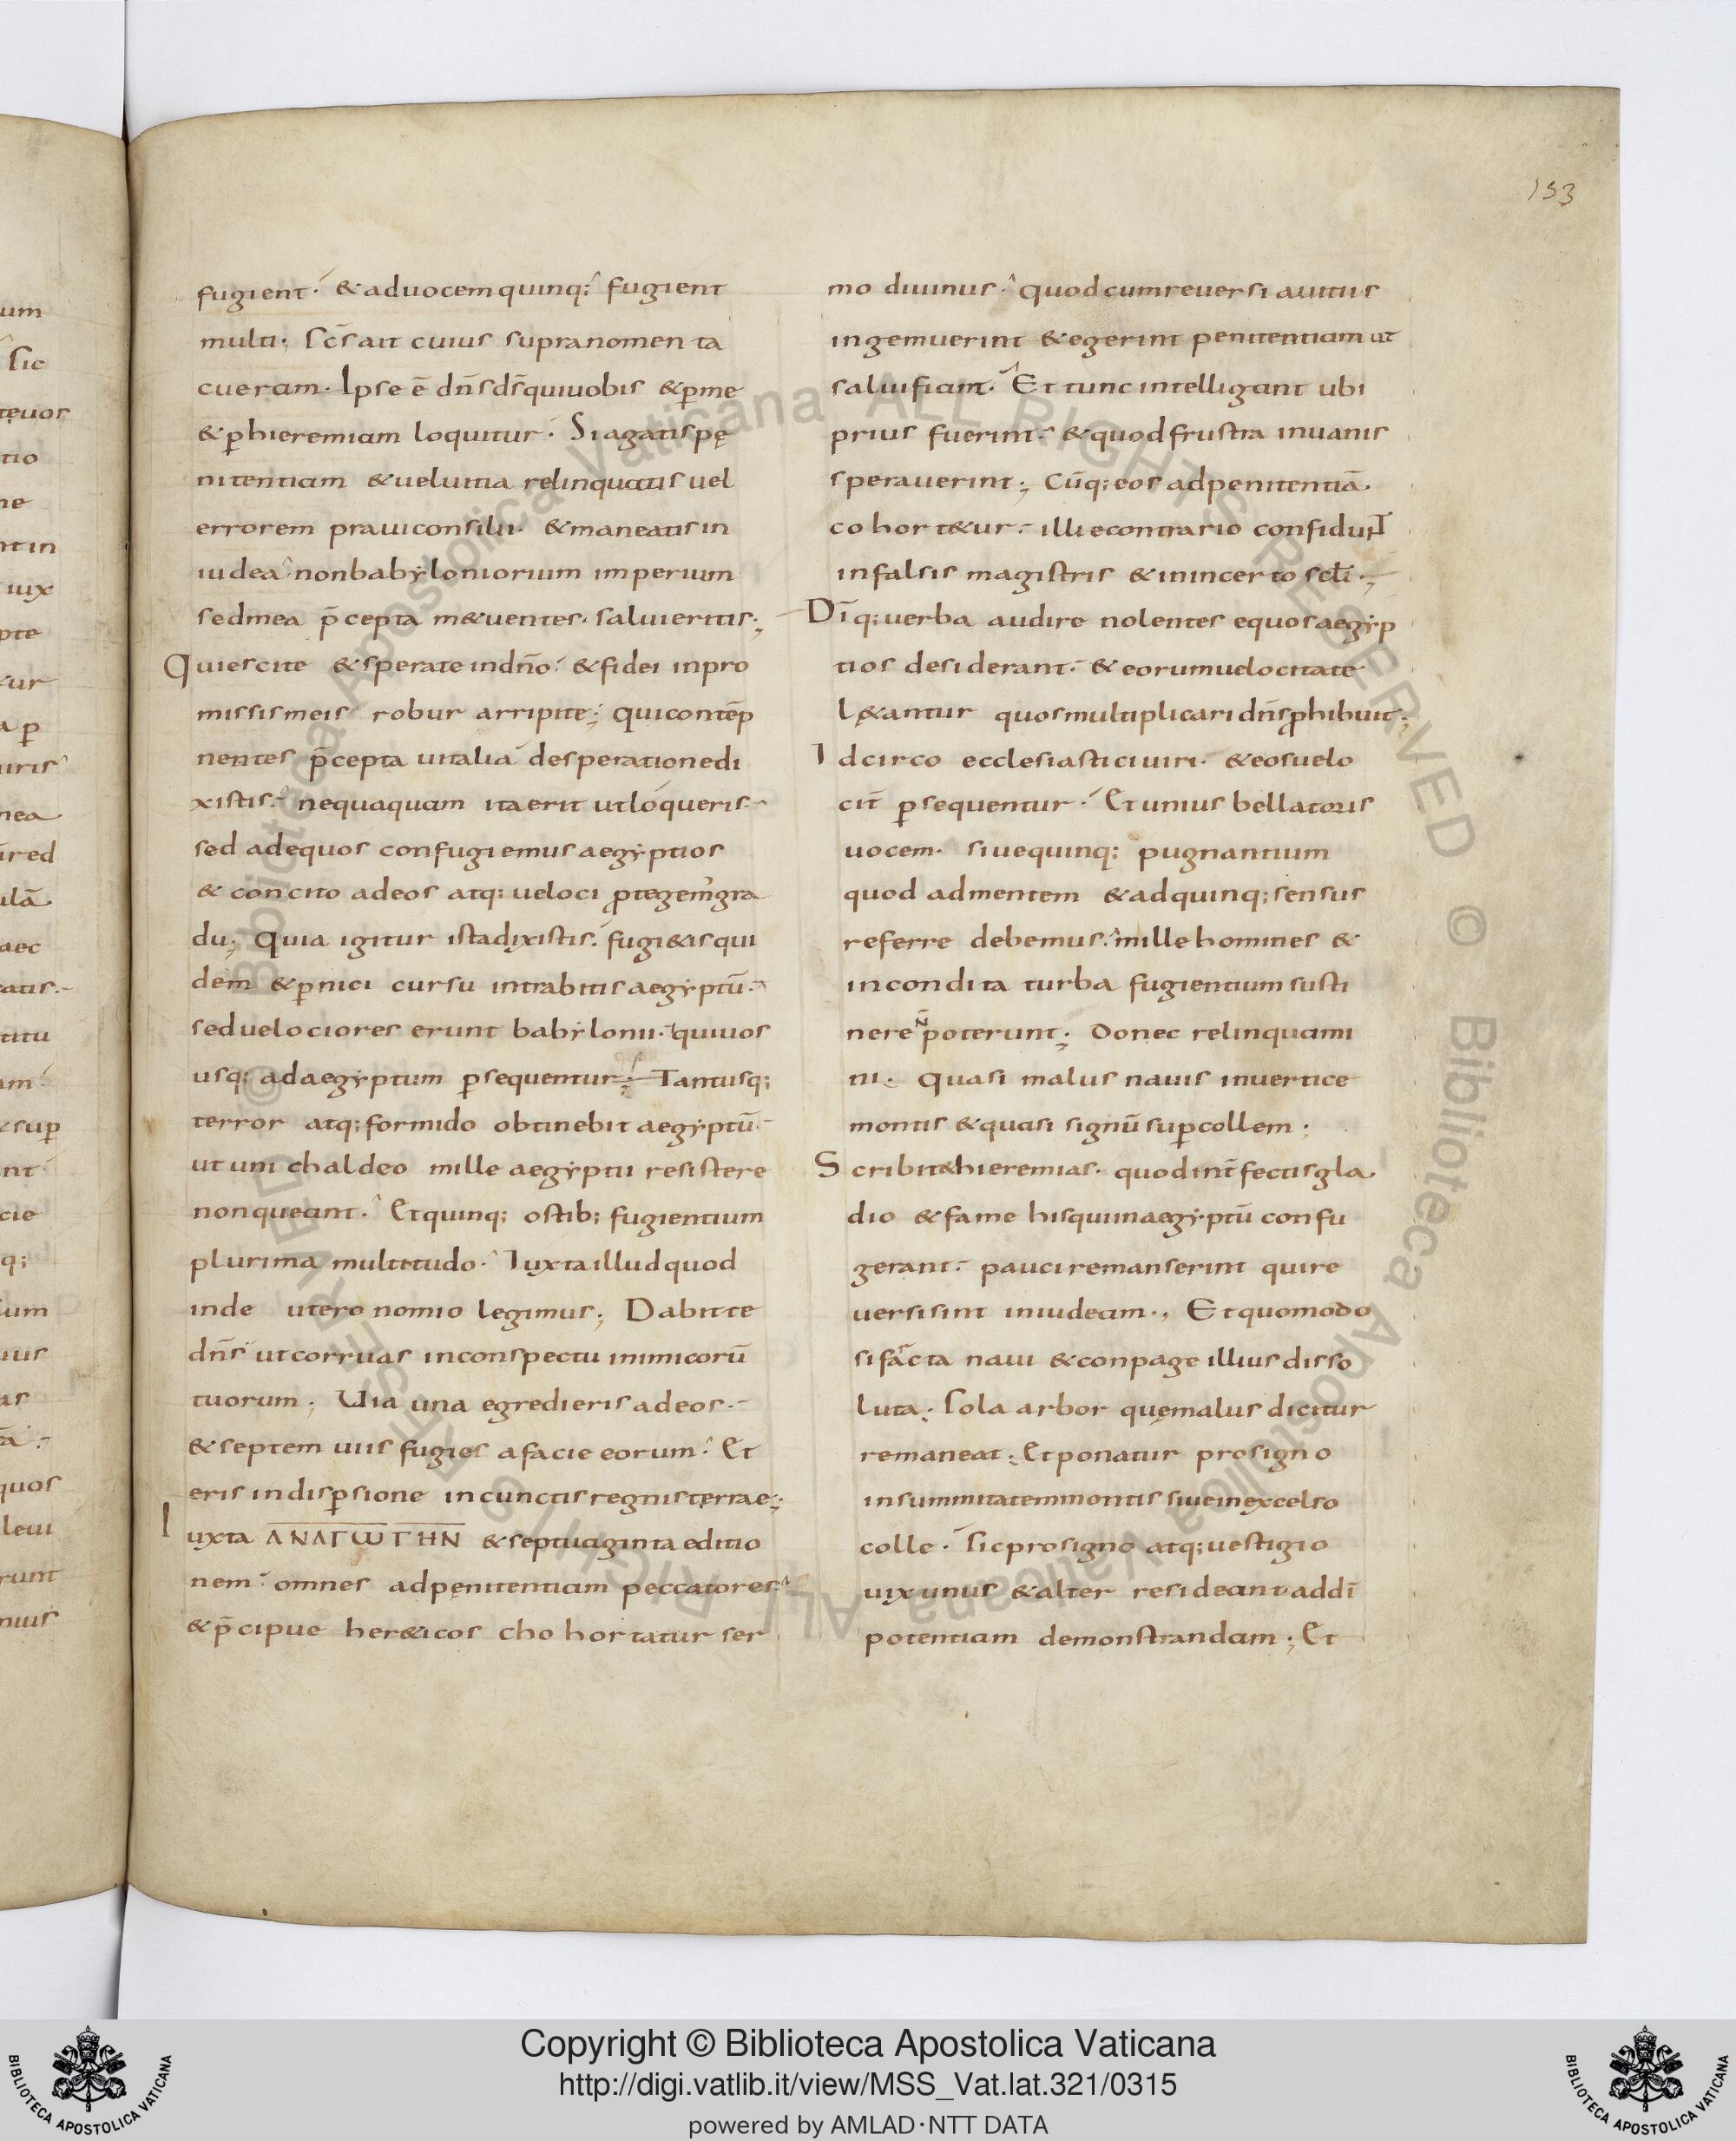 153
fugient. & aduocem quinq; fugient
multi; sc̄s ait cuius supra nomen ta
cueram. Ipse ē dn̄s ds̄ qui uobis & ꝑme
& ꝑhieremiam loquitur. Si agatis pę
nitentiam & uel uitia relinquatis uel
errorem praui consilii. & maneatis in
iudea. non babyloniorium imperium
sed mea p̄cepta m&uentes. salui eritis;
Quiescite & sperate in dn̄o. & fidei in pro
missis meis robur arripite; qui contēp
nentes p̄cepta uitalia desperatione di
xistis. nequaquam ita erit ut loqueris.
sed ad equos confugiemus aegyptios
& concito ad eos atq; ueloci ꝓtegem̄ gra
du; Quia igitur ista dixistis. fugi&is qui
dem & ꝑnici cursu intrabitis aegyptū.
sed uelociores erunt babylonii. qui uos
usq; ad aegyptum ꝑsequentur; Tantusq;
terror atq; formido obtinebit aegyptū.
ut uni chaldeo mille aegyptii resistere
non queant. Et quinq; ostib; fugientium
plurima multitudo. Iuxta illud quod
in deuteronomio legimus; Dabit te
dn̄s ut corruas in conspectu inimicorū
tuorum; Uia una egredieris ad eos.
& septem uiis fugies a facie eorum. Et
eris in disꝑsione in cunctis regnis terrae;
Iuxta ΑΝΑΓΩΓΗΝ & septuaginta editio
nem. omnes ad pęnitentiam peccatores
& p̄cipue her&icos cho hortatur ser
mo diuinus. quod cum reuersi a uitiis
ingemuerint & egerint penitentiam ut
saluifiant. Et tunc intelligant ubi
prius fuerint. & quod frustra in uanis
sperauerint; Cūq; eos ad penitentiā.
cohort&ur. illi e contrario confidunt
in falsis magistris & in incerto scl̄i.
Dīq; uerba audire nolentes equos aegyp
tios desiderant. & eorum uelocitate
lę&antur quos multiplicari dn̄s ꝓhibuit;
Idcirco ecclesiastici uiri. & eos uelo
cit̄ ꝑsequentur. Et unius bellatoris
uocem. siue quinq; pugnantium
quod ad mentem & ad quinq; sensus
referre debemus. mille homines &
incondita turba fugientium susti
nere n̄ poterunt; Donec relinquami
ni. Quasi malus nauis in uertice
montis & quasi signū suꝑ collem;
Scribit & hieremias. quod int̄fectis gla
dio & fame his qui in aegyptū confu
gerant. pauci remanserint qui re
uersi sint in iudeam., Et quomodo
si fracta naui & conpage illius disso
luta; sola arbor quę malus dicitur
remaneat; Et ponatur pro signo
in summitatem montis siue in excelso
colle. sic pro signo atq; uestigio
uix unus & alter resideant ad dī
potentiam demonstrandam; Et
Copyright © Biblioteca Apostolica Vaticana
http://digi.vatlib.it/view/MSS_Vat.lat.321/0315
powered by AMLAD·NTT DATA
BIBLIOTECA APOSTOLICA VATICANA
BIBLIOTECA APOSTOLICA VATICANA